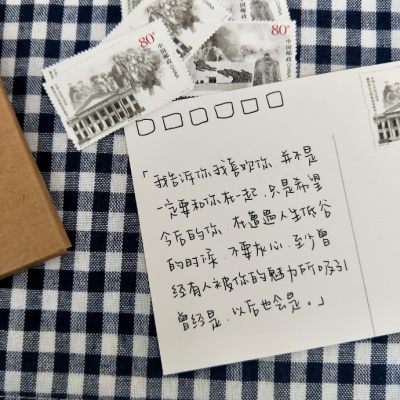 80分
中国邮政
80分
中国邮政
「我告诉你我喜欢你 并不是
一定要和你在一起,只是希望
今后的你,在遭遇人生低谷
的时候,不要灰心,至少曾
经有人被你的魅力所吸引
曾经是,以后也会是。」